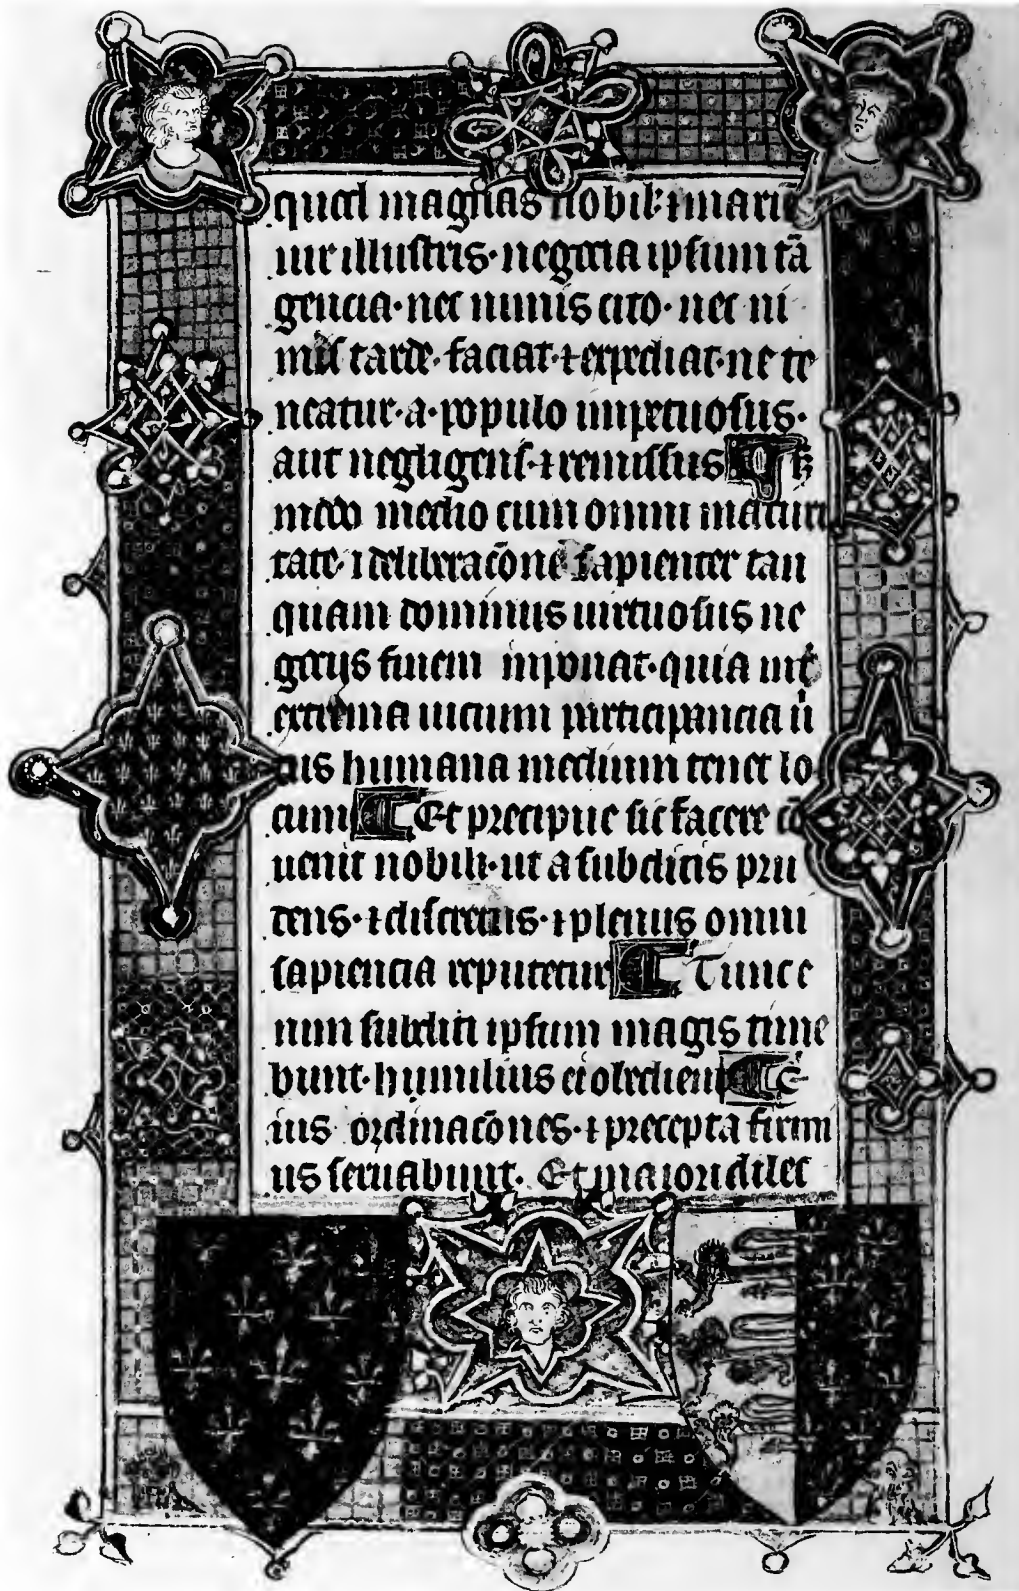 quod magnas nobil' ⁊ mari
uir illustris · negocia ipsum tā
gencia · nec nimis cito · nec ni
mis tarde · faciat · ⁊ expediat · ne te
neatur · a · populo impetuosus ·
aut negligens · ⁊ remissus
modo medio cum omni maturi
tate · ⁊ deliberacōne sapienter tan
quam dominus uirtuosus ne
gociis finem inponat · quia int
extrema uicium participancia
tus humana medium tenet lo
cum Et precipue sic facere cō
uenit nobili · ut a subditis pru
dens · ⁊ discretus · ⁊ plenus omni
sapiencia reputetur Tunc e
nim subditi ipsum magis time
bunt · humilius ei obedient ⁊ e
ius ordinacōnes · ⁊ precepta firmi
us seruabunt. Et maiori dilec